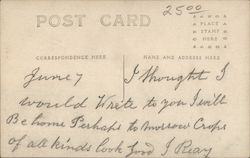 25 00
POST CARD
PLACE
STAMP
HERE
CORRESPONDENCE HERE
NAME AND ADDRESS HERE
June 7 I thought I
would Write to you I will
Be home Perhaps to morrow Crops
of all kinds look good I Reay